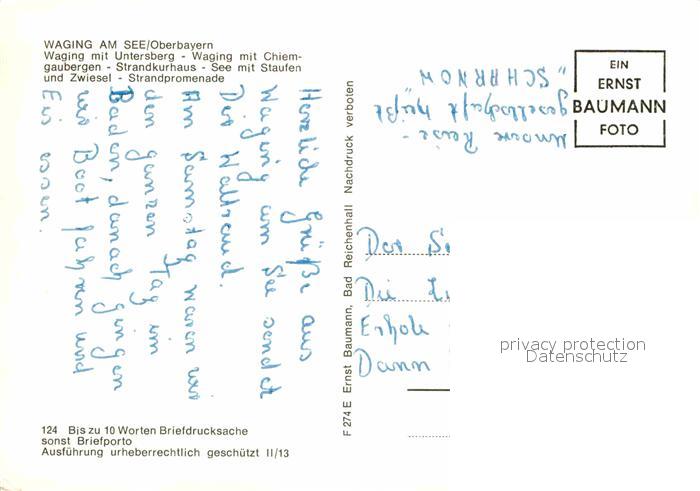 WAGING AM SEE/Oberbayern
Waging mit Untersberg - Waging mit Chiem-
gaubergen - Strandkurhaus - See mit Staufen
und Zwiesel - Strandpromenade
Herzliche Grüße aus
Waging am See sendet
Dir Waltraud.
Am Samstag waren wir
den ganzen Tag im
Baden, danach gingen
wir Boot fahren und
Eis essen.
124 Bis zu 10 Worten Briefdrucksache
sonst Briefporto
Ausführung urheberrechtlich geschützt II/13
F 274 E Ernst Baumann, Bad Reichenhall Nachdruck verboten
EIN
ERNST
BAUMANN
FOTO
Unsere Reise-
gesellschaft heißt
"SCHARNOW
Der
Die
Erhole
Dann
privacy protection
Datenschutz